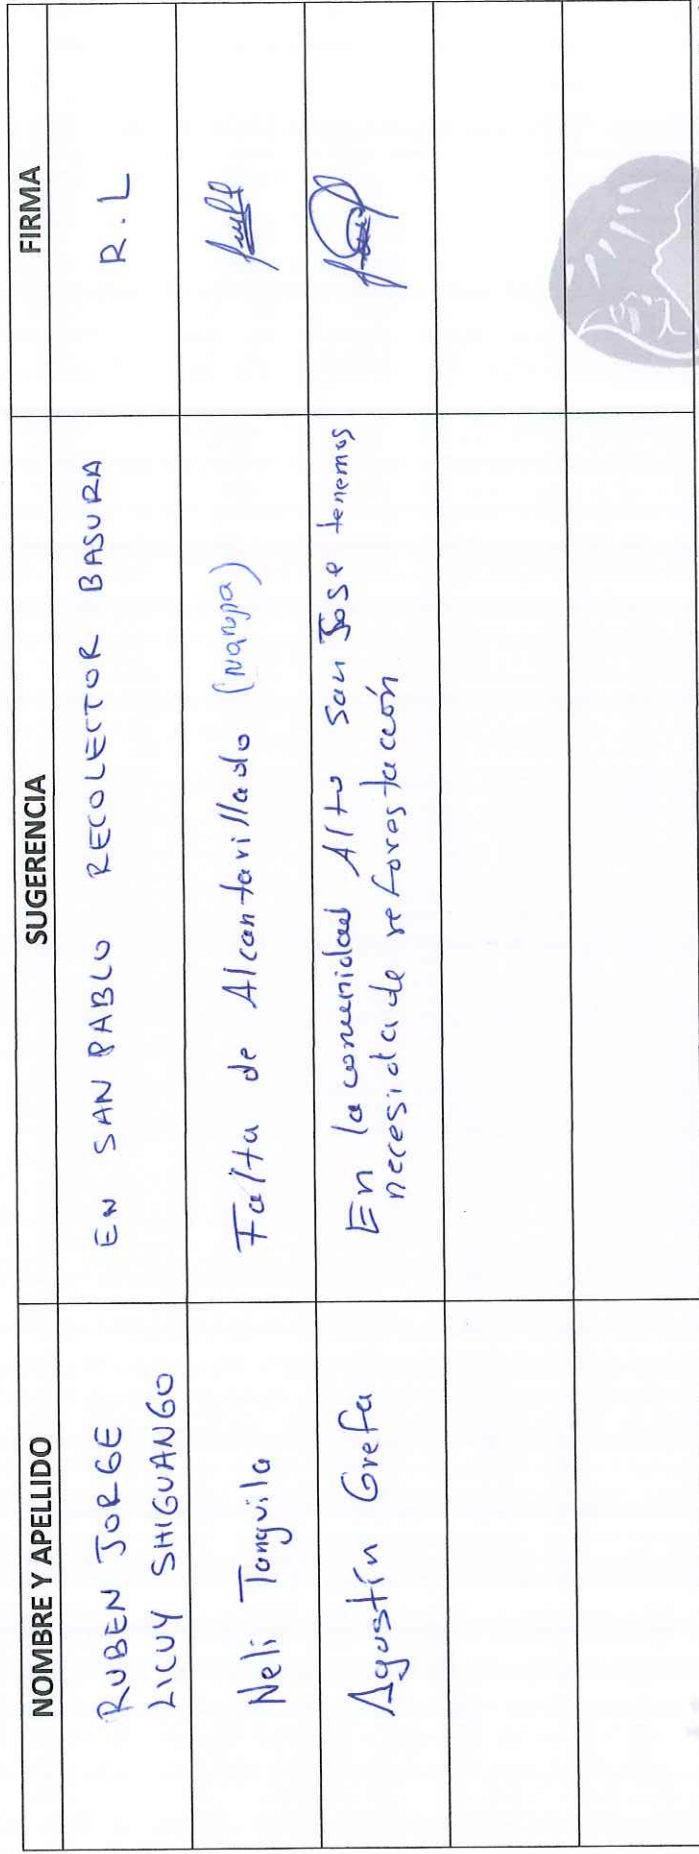 NOMBRE Y APELLIDO SUGERENCIA FIRMA
RUBEN JORGE
LICUY SHIGUANGO
EN SAN PABLO RECOLECTOR BASURA
R.L
Neli Tanguila
Falta de Alcantarillado (Narupa)
Agustín Grefa
En la comunidad Alto San Jose tenemos
necesidad de reforestación